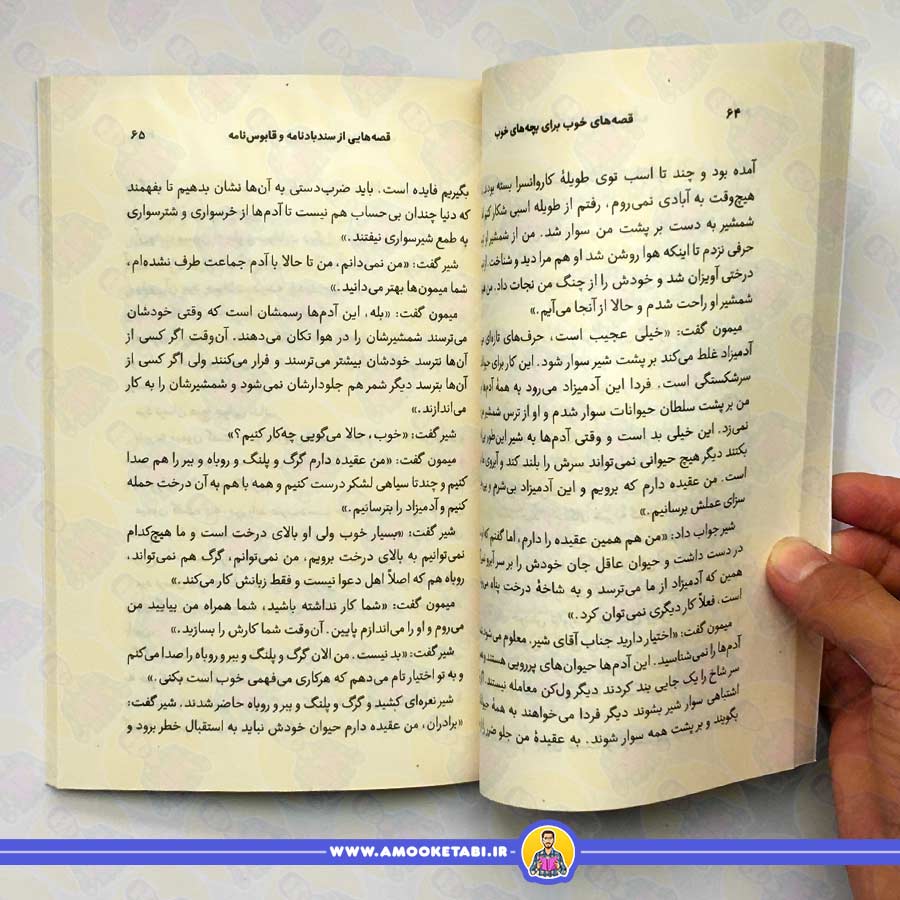 ۶۴
قصه‌های خوب برای بچه‌های خوب
آمده بود و چند تا اسب توی طویلهٔ کاروانسرا بسته بودند
هیچ‌وقت به آبادی نمی‌روم، رفتم از طویله اسبی شکار کنم
شمشیر به دست بر پشت من سوار شد. من از شمشیر او
حرفی نزدم تا اینکه هوا روشن شد او هم مرا دید و شناخت.
درختی آویزان شد و خودش را از چنگ من نجات داد.
شمشیر او راحت شدم و حالا از آنجا می‌آیم.»
میمون گفت: «خیلی عجیب است، حرف‌های تازه‌ای
آدمیزاد غلط می‌کند بر پشت شیر سوار شود. این کار برای
سرشکستگی است. فردا این آدمیزاد می‌رود به همهٔ
من بر پشت سلطان حیوانات سوار شدم و او از ترس شمشیر
نمی‌زد. این خیلی بد است و وقتی آدم‌ها به شیر این‌طور
بکنند دیگر هیچ حیوانی نمی‌تواند سرش را بلند کند و آبروی
است. من عقیده دارم که برویم و این آدمیزاد بی‌شرم و
سزای عملش برسانیم.»
شیر جواب داد: «من هم همین عقیده را دارم، اما گفتم که
در دست داشت و حیوان عاقل جان خودش را بر سر آبرو
همین که آدمیزاد از ما می‌ترسد و به شاخهٔ درخت پناه
است، فعلاً کار دیگری نمی‌توان کرد.»
میمون گفت: «اختیار دارید جناب آقای شیر، معلوم می‌شود
آدم‌ها را نمی‌شناسید. این آدم‌ها حیوان‌های پررویی هستند
سر شاخ را یک جایی بند کردند دیگر ول‌کن معامله نیستند.
اشتباهی سوار شیر بشوند دیگر فردا می‌خواهند به همهٔ
بگویند و بر پشت همه سوار شوند. به عقیدهٔ من جلو ضرر را
قصه‌هایی از سندبادنامه و قابوس‌نامه
۶۵
بگیریم فایده است. باید ضرب‌دستی به آن‌ها نشان بدهیم تا بفهمند
که دنیا چندان بی‌حساب هم نیست تا آدم‌ها از خرسواری و شترسواری
به طمع شیرسواری نیفتند.»
شیر گفت: «من نمی‌دانم، من تا حالا با آدم جماعت طرف نشده‌ام،
شما میمون‌ها بهتر می‌دانید.»
میمون گفت: «بله، این آدم‌ها رسمشان است که وقتی خودشان
می‌ترسند شمشیرشان را در هوا تکان می‌دهند. آن‌وقت اگر کسی از
آن‌ها نترسد خودشان بیشتر می‌ترسند و فرار می‌کنند ولی اگر کسی از
آن‌ها بترسد دیگر شمر هم جلودارشان نمی‌شود و شمشیرشان را به کار
می‌اندازند.»
شیر گفت: «خوب، حالا می‌گویی چه‌کار کنیم؟»
میمون گفت: «من عقیده دارم گرگ و پلنگ و روباه و ببر را هم صدا
کنیم و چند تا سیاهی لشکر درست کنیم و همه با هم به آن درخت حمله
کنیم و آدمیزاد را بترسانیم.»
شیر گفت: «بسیار خوب ولی او بالای درخت است و ما هیچ‌کدام
نمی‌توانیم به بالای درخت برویم، من نمی‌توانم، گرگ هم نمی‌تواند،
روباه هم که اصلاً اهل دعوا نیست و فقط زبانش کار می‌کند.»
میمون گفت: «شما کار نداشته باشید، شما همراه من بیایید من
می‌روم و او را می‌اندازم پایین. آن‌وقت شما کارش را بسازید.»
شیر گفت: «بد نیست. من الان گرگ و پلنگ و ببر و روباه را صدا می‌کنم
و به تو اختیار تام می‌دهم که هرکاری می‌فهمی خوب است بکنی.»
شیر نعره‌ای کشید و گرگ و پلنگ و ببر و روباه حاضر شدند. شیر گفت:
«برادران، من عقیده دارم حیوان خودش نباید به استقبال خطر برود و
WWW.AMOOKETABI.IR